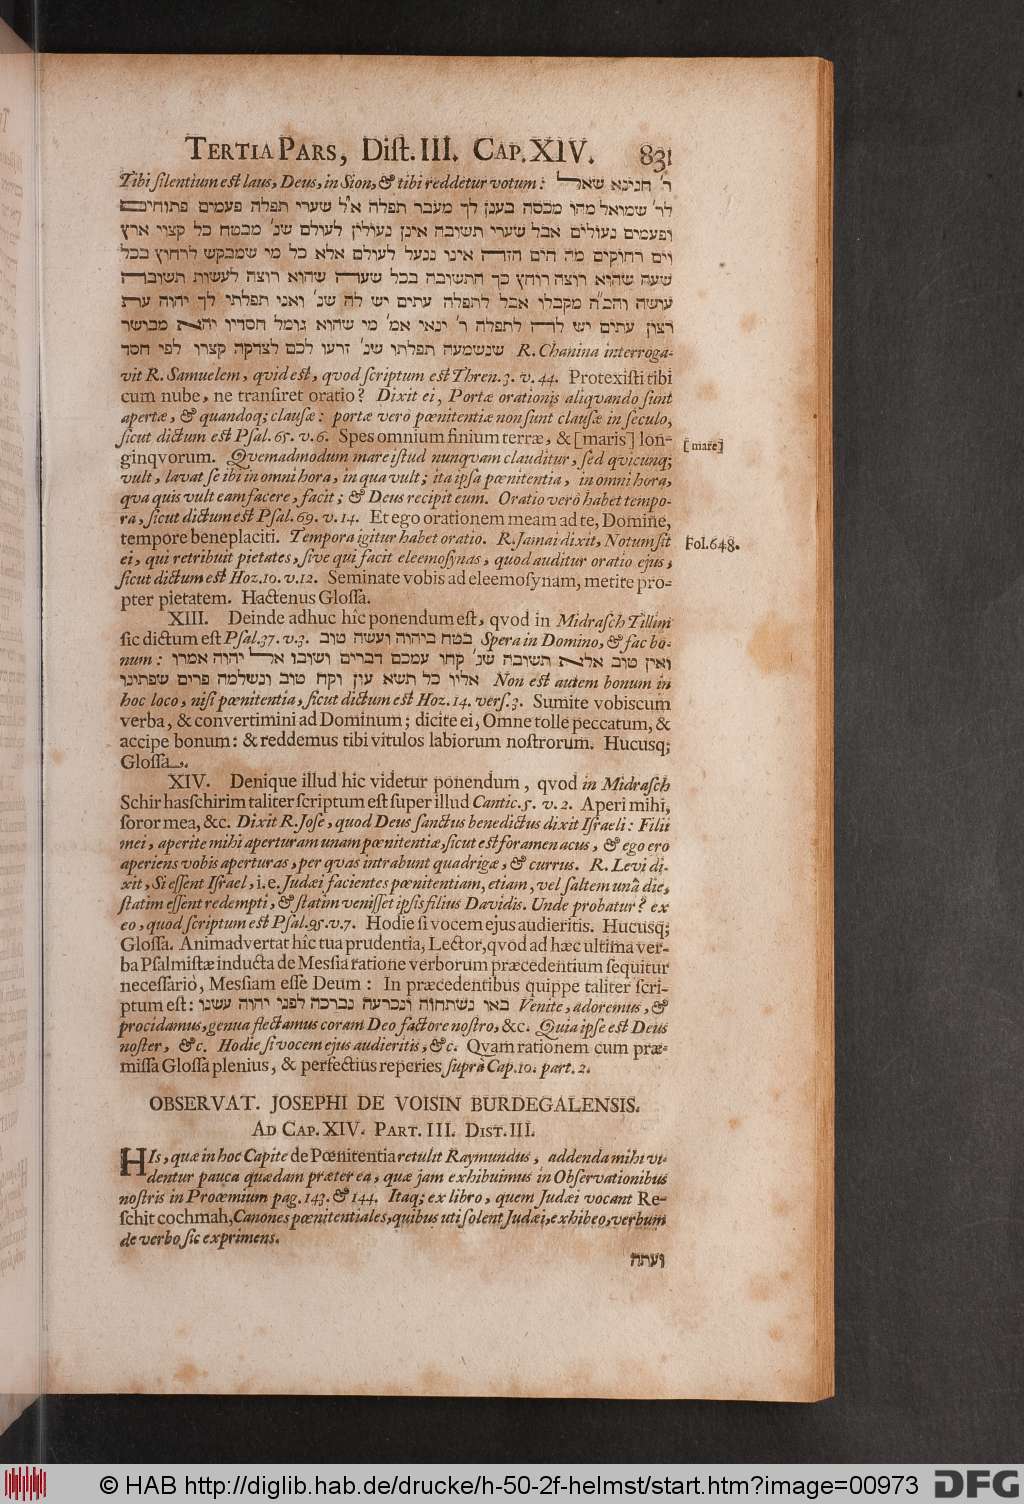 TERTIA PARS, Diſt. III. CAP. XIV. 831
Tibi ſilentium eſt laus, Deus, in Sion, & tibi reddetur votum: ר׳ חנינא שאל
לר׳ שמואל מהו מכסה בענן לך מעבר תפלה א״ל שערי תפלה פעמים פתוחים
ופעמים נעולים אבל שערי תשובה אינן נעולין לעולם שנ׳ מבטח כל קצוי ארץ
וים רחוקים מה הים הזה אינו ננעל לעולם אלא כל מי שמבקש לרחוץ בכל
שעה שהוא רוצה רוחץ כך התשובה בכל שעה שהוא רוצה לעשות תשובה
עושה והב״ה מקבלו אבל לתפלה עתים יש לה שנ׳ ואני תפלתי לך יהוה עת
רצון עתים יש לה לתפלה ר׳ ינאי אמ׳ מי שהוא גומל חסדיו יהא מבושר
שנשמעה תפלתו שנ׳ זרעו לכם לצדקה קצרו לפי חסד R. Chanina interroga-
vit R. Samuelem, qvid eſt, qvod ſcriptum eſt Thren. 3. v. 44. Protexiſti tibi
cum nube, ne tranſiret oratio? Dixit ei, Portæ orationis aliqvando ſunt
apertæ, & quandoq; clauſæ: portæ verò pœnitentiæ non ſunt clauſæ in ſeculo,
ſicut dictum eſt Pſal. 65. v. 6. Spes omnium finium terræ, & [maris] lon-
[mare]
ginqvorum. Qvemadmodum mare iſtud nunqvam clauditur, ſed qvicunq;
vult, lavat ſe ibi in omni hora, in qua vult; ita ipſa pœnitentia, in omni hora,
qva quis vult eam facere, facit; & Deus recipit eum. Oratio verò habet tempo-
ra, ſicut dictum eſt Pſal. 69. v. 14. Et ego orationem meam ad te, Domine,
tempore beneplaciti. Tempora igitur habet oratio. R. Jamai dixit, Notum ſit
Fol. 648.
ei, qui retribuit pietates, ſive qui facit eleemoſynas, quod auditur oratio ejus,
ſicut dictum eſt Hoz. 10. v. 12. Seminate vobis ad eleemoſynam, metite pro-
pter pietatem. Hactenus Gloſſa.
XIII. Deinde adhuc hîc ponendum eſt, qvod in Midraſch Tillim
ſic dictum eſt Pſal. 37. v. 3. בטח ביהוה ועשה טוב Spera in Domino, & fac bo-
num: ואין טוב אלא תשובה שנ׳ קחו עמכם דברים ושובו אל יהוה אמרו
אליו כל תשא עון וקח טוב ונשלמה פרים שפתינו Non eſt autem bonum in
hoc loco, niſi pœnitentia, ſicut dictum eſt Hoz. 14. verſ. 3. Sumite vobiscum
verba, & convertimini ad Dominum; dicite ei, Omne tolle peccatum, &
accipe bonum: & reddemus tibi vitulos labiorum noſtrorum. Hucusq;
Gloſſa.
XIV. Denique illud hîc videtur ponendum, qvod in Midraſch
Schir hasſchirim taliter ſcriptum eſt ſuper illud Cantic. 5. v. 2. Aperi mihi,
ſoror mea, &c. Dixit R. Joſe, quod Deus ſanctus benedictus dixit Iſraeli: Filii
mei, aperite mihi aperturam unam pœnitentiæ, ſicut eſt foramen acus, & ego ero
aperiens vobis aperturas, per qvas intrabunt quadrigæ, & currus. R. Levi di-
xit, Si eſſent Iſrael, i.e. Judæi facientes pœnitentiam, etiam, vel ſaltem unâ die,
ſtatim eſſent redempti, & ſtatim veniſſet ipſis filius Davidis. Unde probatur? ex
eo, quod ſcriptum eſt Pſal. 95. v. 7. Hodie ſi vocem ejus audieritis. Hucusq;
Gloſſa. Animadvertat hîc tua prudentia, Lector, qvod ad hæc ultima ver-
ba Pſalmiſtæ inducta de Mesſia ratione verborum præcedentium ſequitur
neceſſariò, Mesſiam eſſe Deum: In præcedentibus quippe taliter ſcri-
ptum eſt: באו נשתחוה ונכרעה נברכה לפני יהוה עשנו Venite, adoremus, &
procidamus, genua flectamus coram Deo factore noſtro, &c. Quia ipſe eſt Deus
noſter, &c. Hodie ſi vocem ejus audieritis, &c. Qvam rationem cum præ-
miſſa Gloſſa plenius, & perfectius reperies ſuprà Cap. 10. part. 2.
OBSERVAT. JOSEPHI DE VOISIN BURDEGALENSIS.
AD CAP. XIV. PART. III. DIST. III.
HIs, quæ in hoc Capite de Pœnitentia retulit Raymundus, addenda mihi vi-
dentur pauca quædam præter ea, quæ jam exhibuimus in Obſervationibus
noſtris in Proœmium pag. 143. & 144. Itaq; ex libro, quem Judæi vocant Re-
ſchit cochmah, Canones pœnitentiales, quibus uti ſolent Judæi, exhibeo, verbum
de verbo ſic exprimens.
ועתה
© HAB http://diglib.hab.de/drucke/h-50-2f-helmst/start.htm?image=00973 DFG